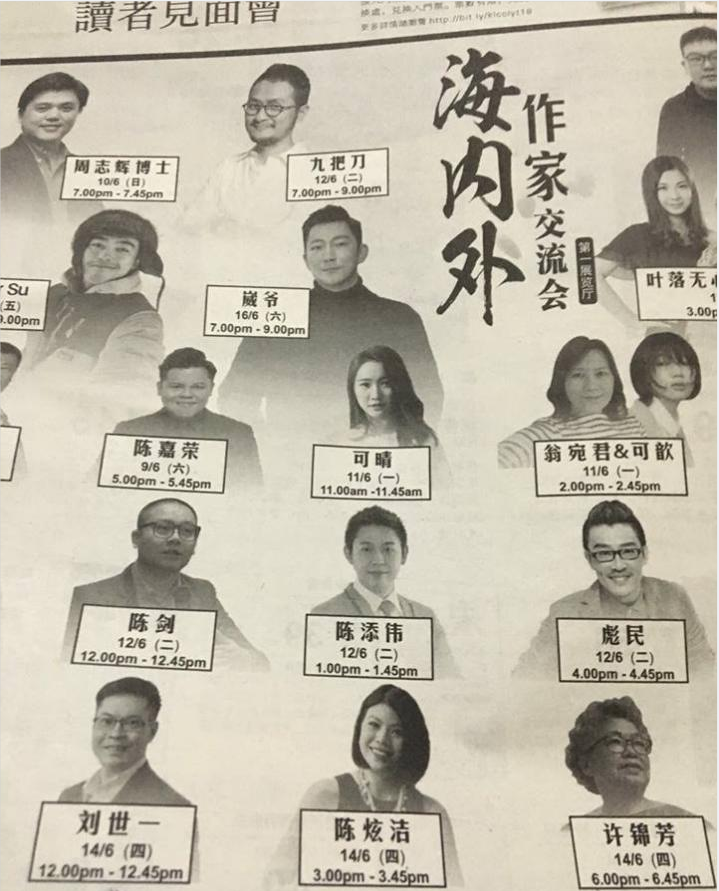 讀者見面會
更多詳情請瀏覽 http://bit.ly/klcciyt18
海内外
作家交流会
第一展览厅
周志辉博士
10/6 (日)
7.00pm - 7.45pm
九把刀
12/6 (二)
7.00pm - 9.00pm
r Su
(五)
9.00pm
崴爷
16/6 (六)
7.00pm - 9.00pm
叶落无心
1
3.00p
陈嘉荣
9/6 (六)
5.00pm - 5.45pm
可晴
11/6 (一)
11.00am -11.45am
翁宛君&可歆
11/6 (一)
2.00pm - 2.45pm
陈剑
12/6 (二)
12.00pm - 12.45pm
陈添伟
12/6 (二)
1.00pm - 1.45pm
彪民
12/6 (二)
4.00pm - 4.45pm
刘世一
14/6 (四)
12.00pm - 12.45pm
陈炫洁
14/6 (四)
3.00pm - 3.45pm
许锦芳
14/6 (四)
6.00pm - 6.45pm